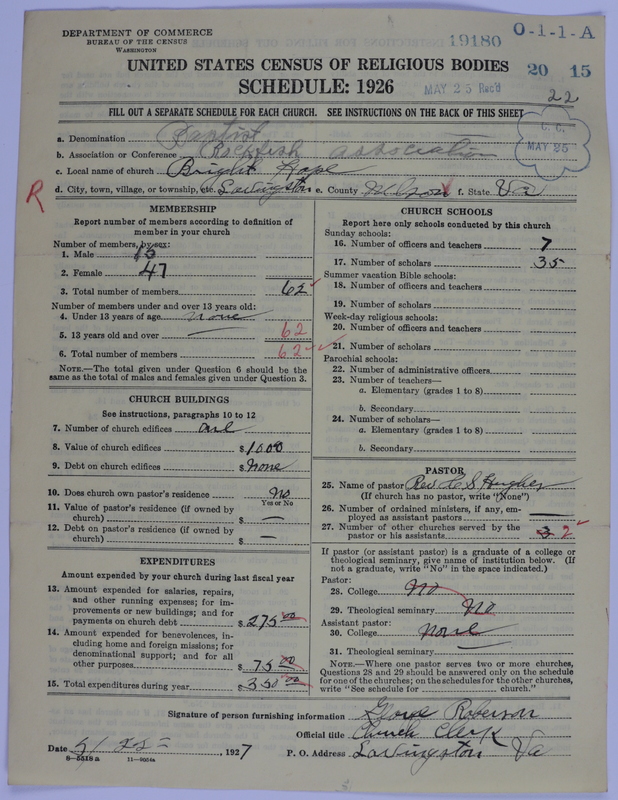 DEPARTMENT OF COMMERCE
BUREAU OF THE CENSUS
WASHINGTON
19180 O-1-1-A
UNITED STATES CENSUS OF RELIGIOUS BODIES
SCHEDULE: 1926
20 15
MAY 25 Rec'd
22
FILL OUT A SEPARATE SCHEDULE FOR EACH CHURCH. SEE INSTRUCTIONS ON THE BACK OF THIS SHEET
C. C.
MAY 25
a. Denomination Baptist
b. Association or Conference Rockfish association
c. Local name of church Bright Hope
R
d. City, town, village, or township, etc. Lovingston e. County Nelson f. State Va
MEMBERSHIP
Report number of members according to definition of
member in your church
Number of members, by sex:
1. Male 15
2. Female 47
3. Total number of members 62
Number of members under and over 13 years old:
4. Under 13 years of age none
5. 13 years old and over 62
6. Total number of members 62
NOTE.—The total given under Question 6 should be
same as the total of males and females given under Question 3.
CHURCH BUILDINGS
See instructions, paragraphs 10 to 12
7. Number of church edifices one
8. Value of church edifices $1000
9. Debt on church edifices $None
10. Does church own pastor's residence No
Yes or No
11. Value of pastor's residence (if owned by
church) $ —
12. Debt on pastor's residence (if owned by
church) $ —
EXPENDITURES
Amount expended by your church during last fiscal year
13. Amount expended for salaries, repairs,
and other running expenses; for im-
provements or new buildings; and for
payments on church debt $275 00
14. Amount expended for benevolences, in-
cluding home and foreign missions; for
denominational support; and for all
other purposes $75 00
15. Total expenditures during year $350 00
CHURCH SCHOOLS
Report here only schools conducted by this church
Sunday schools:
16. Number of officers and teachers 7
17. Number of scholars 35
Summer vacation Bible schools:
18. Number of officers and teachers
19. Number of scholars
Week-day religious schools:
20. Number of officers and teachers
21. Number of scholars
Parochial schools:
22. Number of administrative officers
23. Number of teachers—
a. Elementary (grades 1 to 8)
b. Secondary
24. Number of scholars—
a. Elementary (grades 1 to 8)
b. Secondary
PASTOR
25. Name of pastor Rev C S Hughes
(If church has no pastor, write "None")
26. Number of ordained ministers, if any, em-
ployed as assistant pastors —
27. Number of other churches served by the
pastor or his assistants 3 2
If pastor (or assistant pastor) is a graduate of a college or
theological seminary, give name of institution below. (If
not a graduate, write "No" in the space indicated.)
Pastor:
28. College No
29. Theological seminary No
Assistant pastor:
30. College None
31. Theological seminary —
NOTE.—Where one pastor serves two or more churches,
Questions 28 and 29 should be answered only on the schedule
for one of the churches; on the schedules for the other churches,
write "See schedule for church."
Signature of person furnishing information George Roberson
Official title Church Clerk
Date 5/25 — , 1927 P. O. Address Lovingston Va
8—5518 a 11—9054a